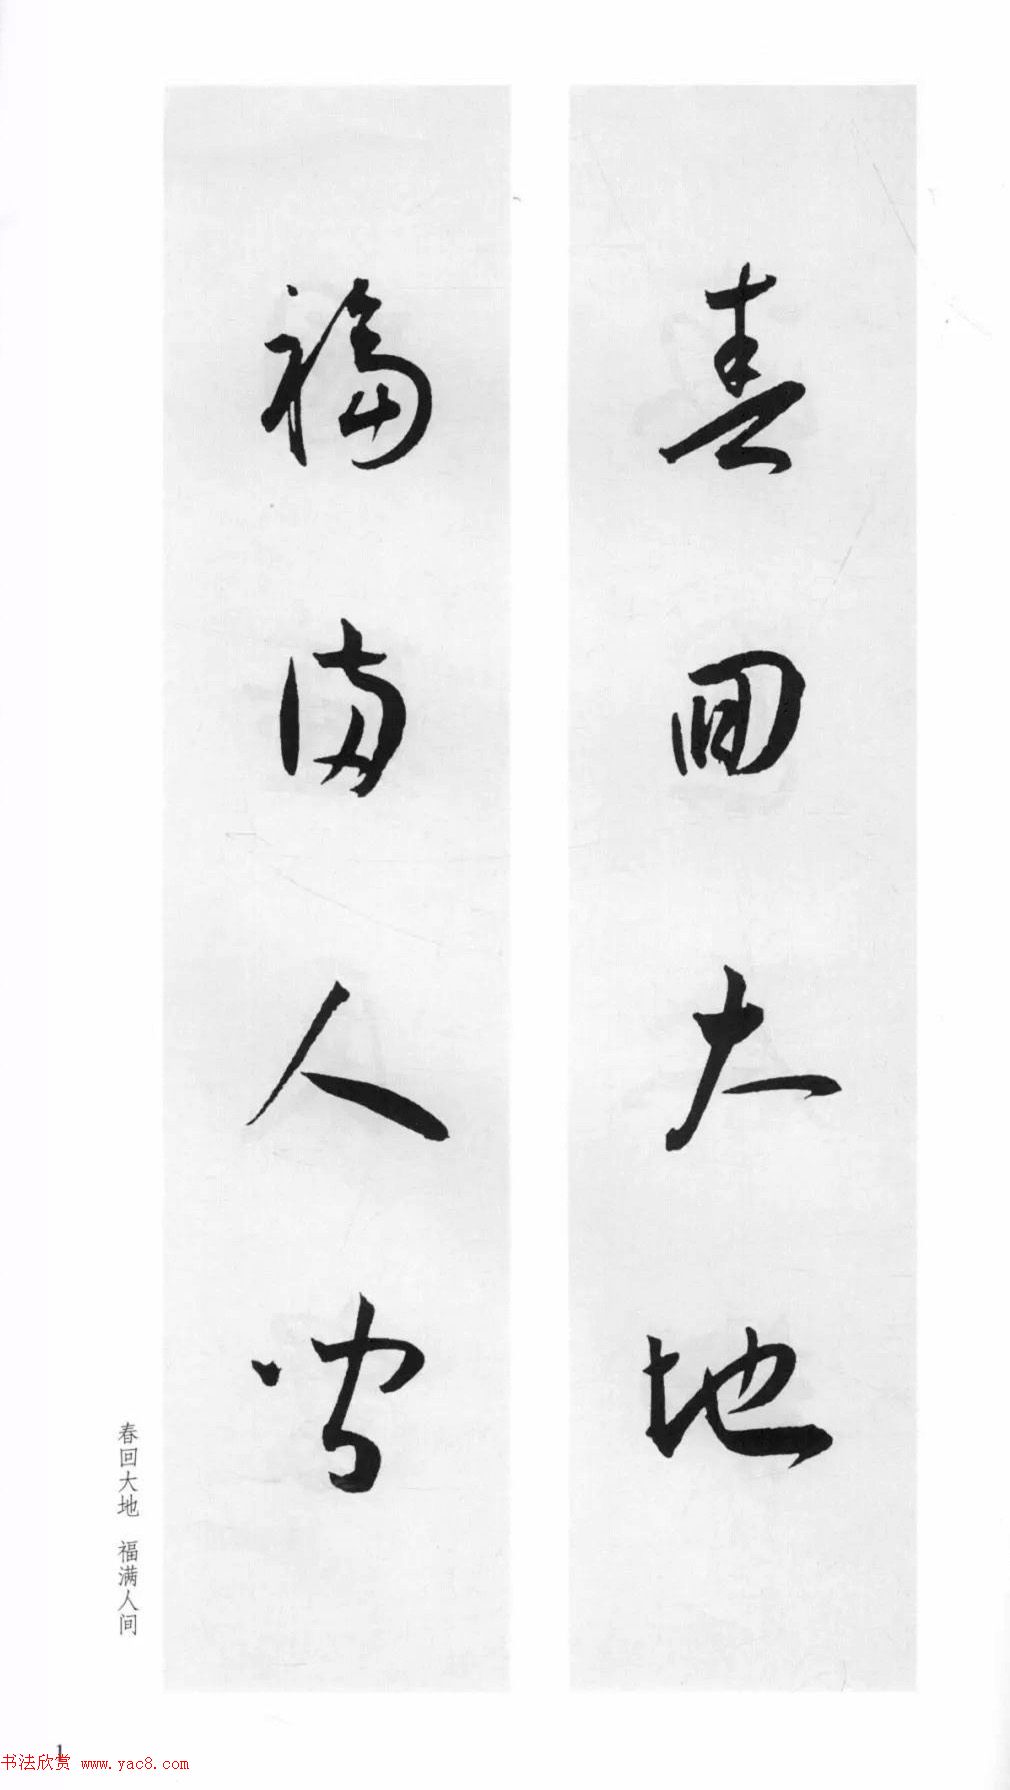 春回大地
福满人间
春回大地 福满人间
1
书法欣赏 www.yac8.com